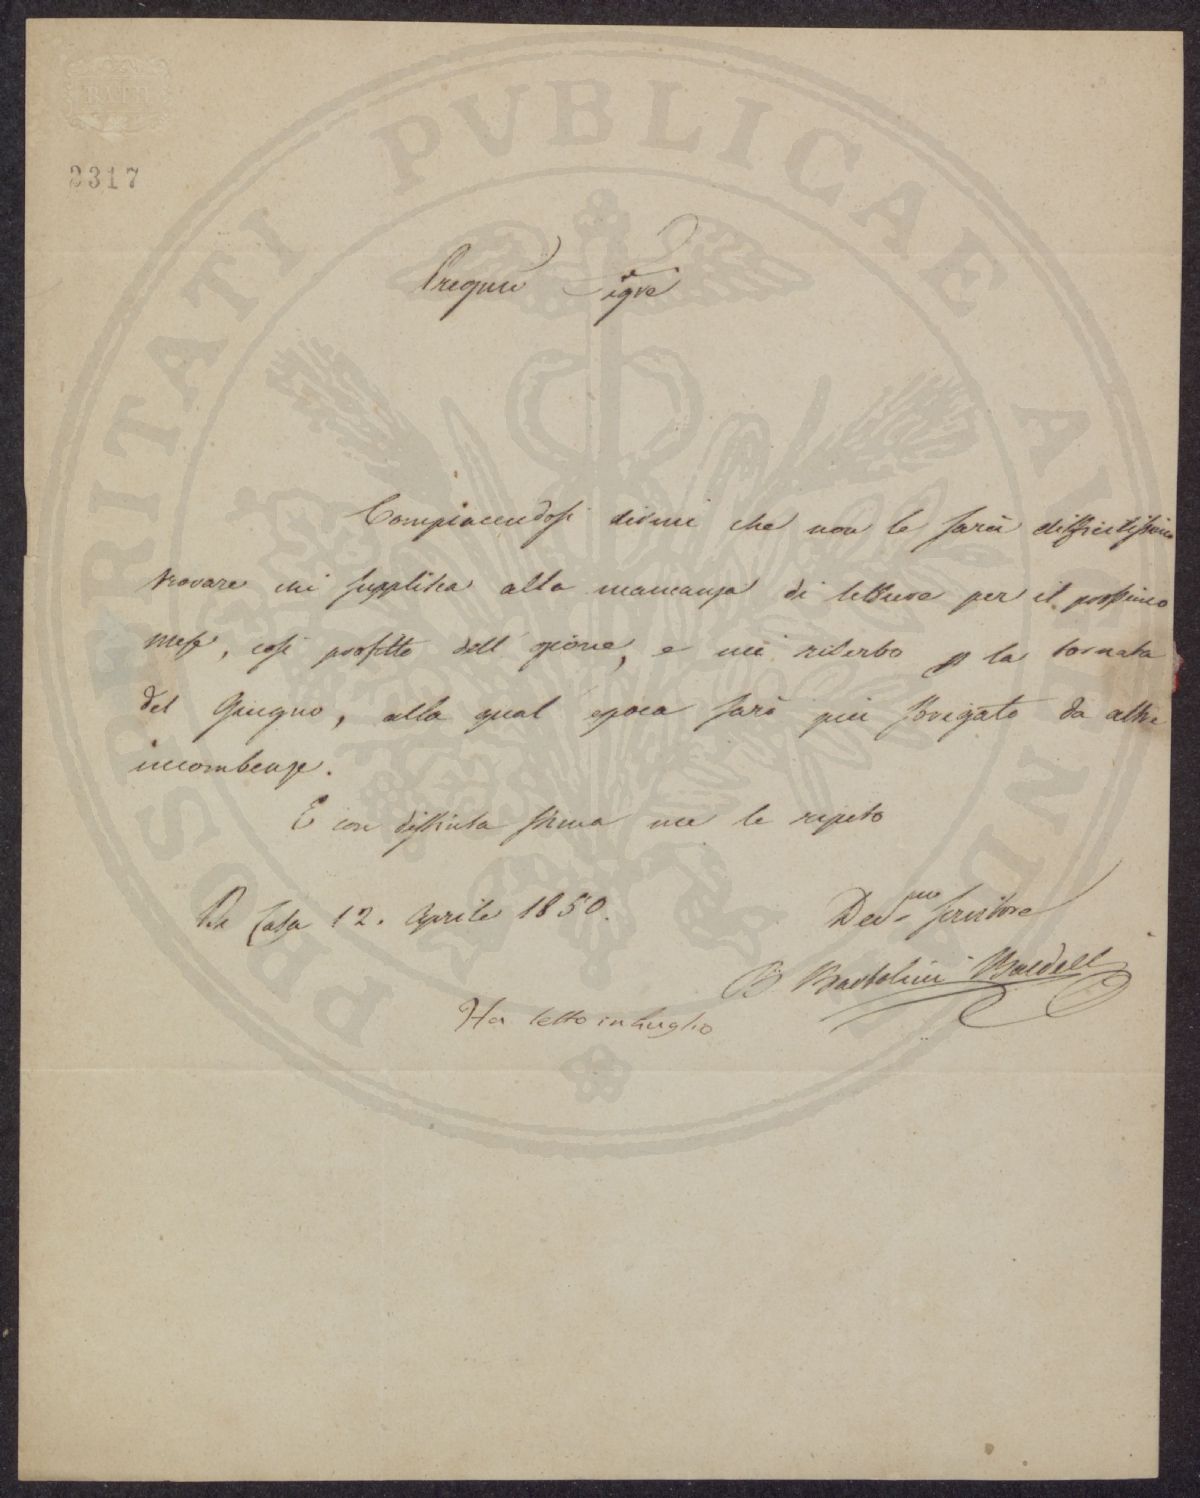 BATH
2317
PROSPERITATI PUBLICAE AUGENDAE
Pregmo Sigre
Compiacendosi dirmi che non le sarà difficilissimo
trovare chi supplisca alla mancanza di letture per il prossimo
mese, così profitto dell'opzione, e mi riserbo p la tornata
del Giugno, alla qual epoca sarò più sbrigato da altre
incombenze.
E con distinta stima me le ripeto
Di Casa 12. Aprile 1850.
Devmo Servitore
B Bartolini Baldelli
Ha letto in Luglio